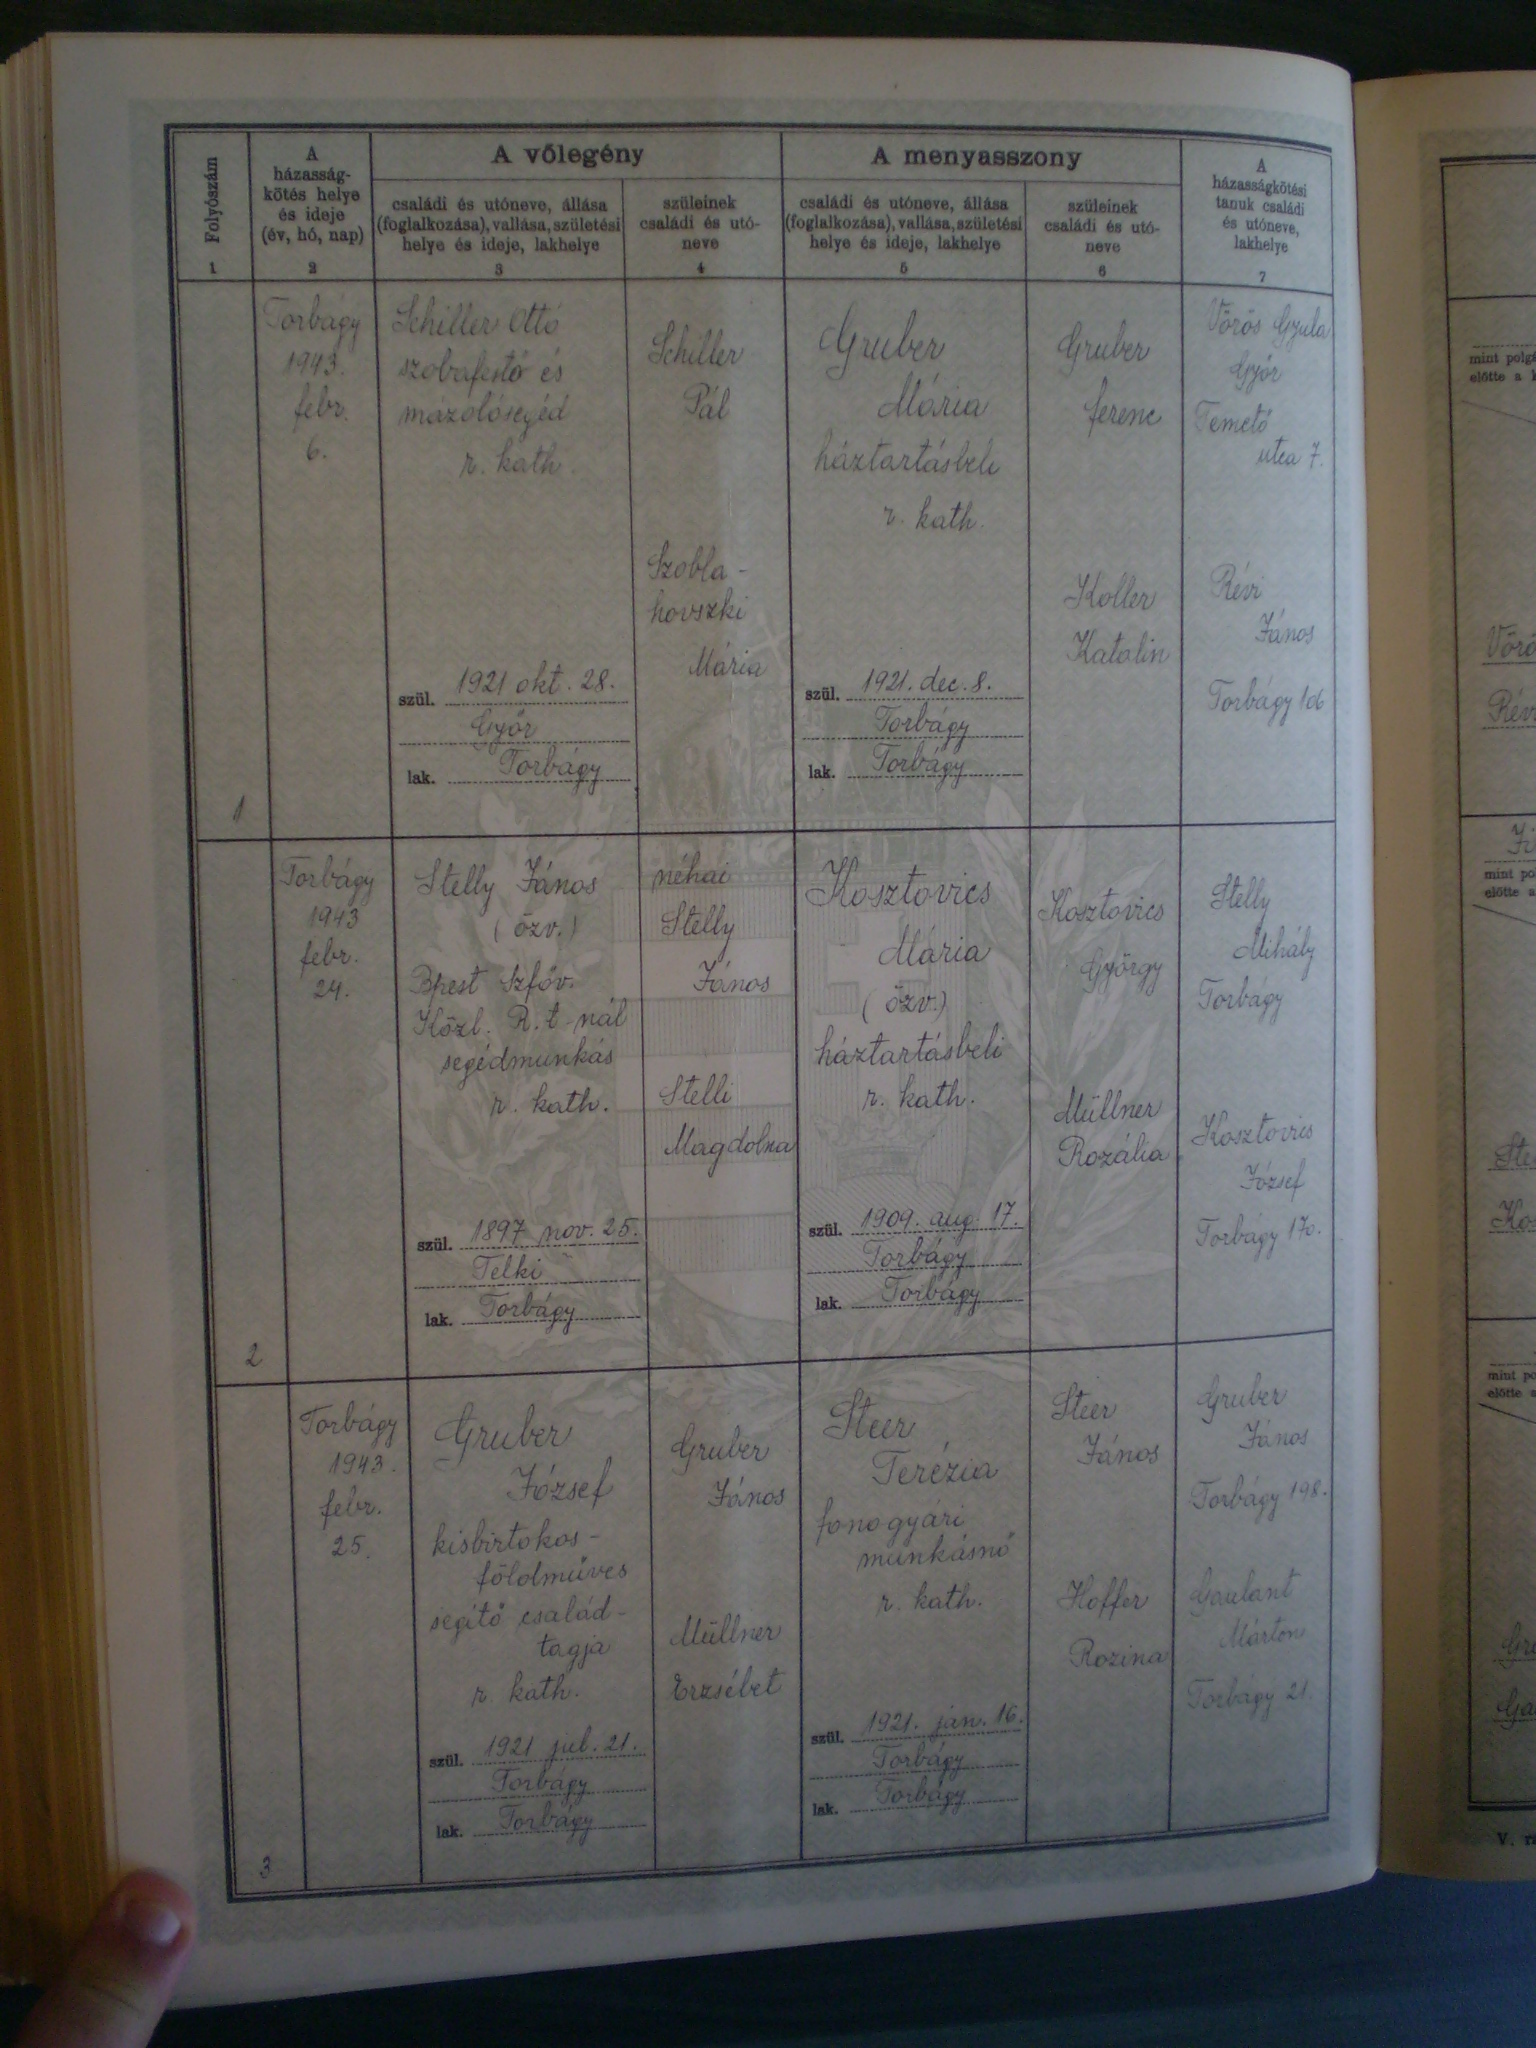 Folyószám
1
A
házasság-
kötés helye
és ideje
(év, hó, nap)
2
A vőlegény
családi és utóneve, állása
(foglalkozása), vallása, születési
helye és ideje, lakhelye
3
szüleinek
családi és utó-
neve
4
A menyasszony
családi és utóneve, állása
(foglalkozása), vallása, születési
helye és ideje, lakhelye
5
szüleinek
családi és utó-
neve
6
A
házasságkötési
tanuk családi
és utóneve,
lakhelye
7
1
Torbágy
1943.
febr.
6.
Schiller Ottó
szobafestő és
mázolósegéd
r. kath.
szül. 1921 okt. 28.
Győr
lak. Torbágy
Schiller
Pál
Szobla-
hovszki
Mária
Gruber
Mária
háztartásbeli
r. kath.
szül. 1921. dec. 8.
Torbágy
lak. Torbágy
Gruber
ferenc
Koller
Katalin
Vörös Gyula
Győr
Temető
utca 7.
Révi
János
Torbágy 106
2
Torbágy
1943
febr.
24.
Stelly János
(özv.)
Bpest Szföv.
Közl. R.t-nál
segédmunkás
r. kath.
szül. 1897 nov. 25.
Telki
lak. Torbágy
néhai
Stelly
János
Stelli
Magdolna
Kosztovics
Mária
(özv.)
háztartásbeli
r. kath.
szül. 1909. aug. 17.
Torbágy
lak. Torbágy
Kosztovics
György
Müllner
Rozália
Stelly
Mihály
Torbágy
Kosztovics
József
Torbágy 170.
3
Torbágy
1943.
febr.
25.
Gruber
József
kisbirtokos-
földműves
segítő család-
tagja
r. kath.
szül. 1921 jul. 21.
Torbágy
lak. Torbágy
Gruber
János
Müllner
Erzsébet
Steer
Terézia
fonogyári
munkásnő
r. kath.
szül. 1921. jan. 16.
Torbágy
lak. Torbágy
Steer
János
Hoffer
Rozina
Gruber
János
Torbágy 198.
Gaulant
Márton
Torbágy 21.
mint
előtte a
mint po
előtte a
mint po
előtte a